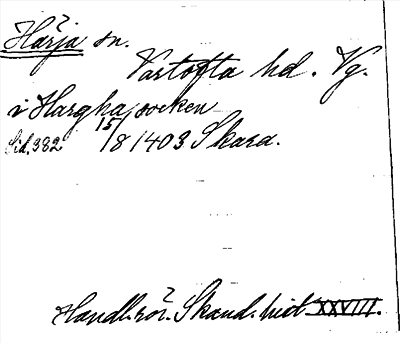 Härja sn.
Vartofta hd. Vg.
i Hargha socken
Sid. 382 15/8 1403 Skara.
Handl. rör. Skand. hist. XXVIII.